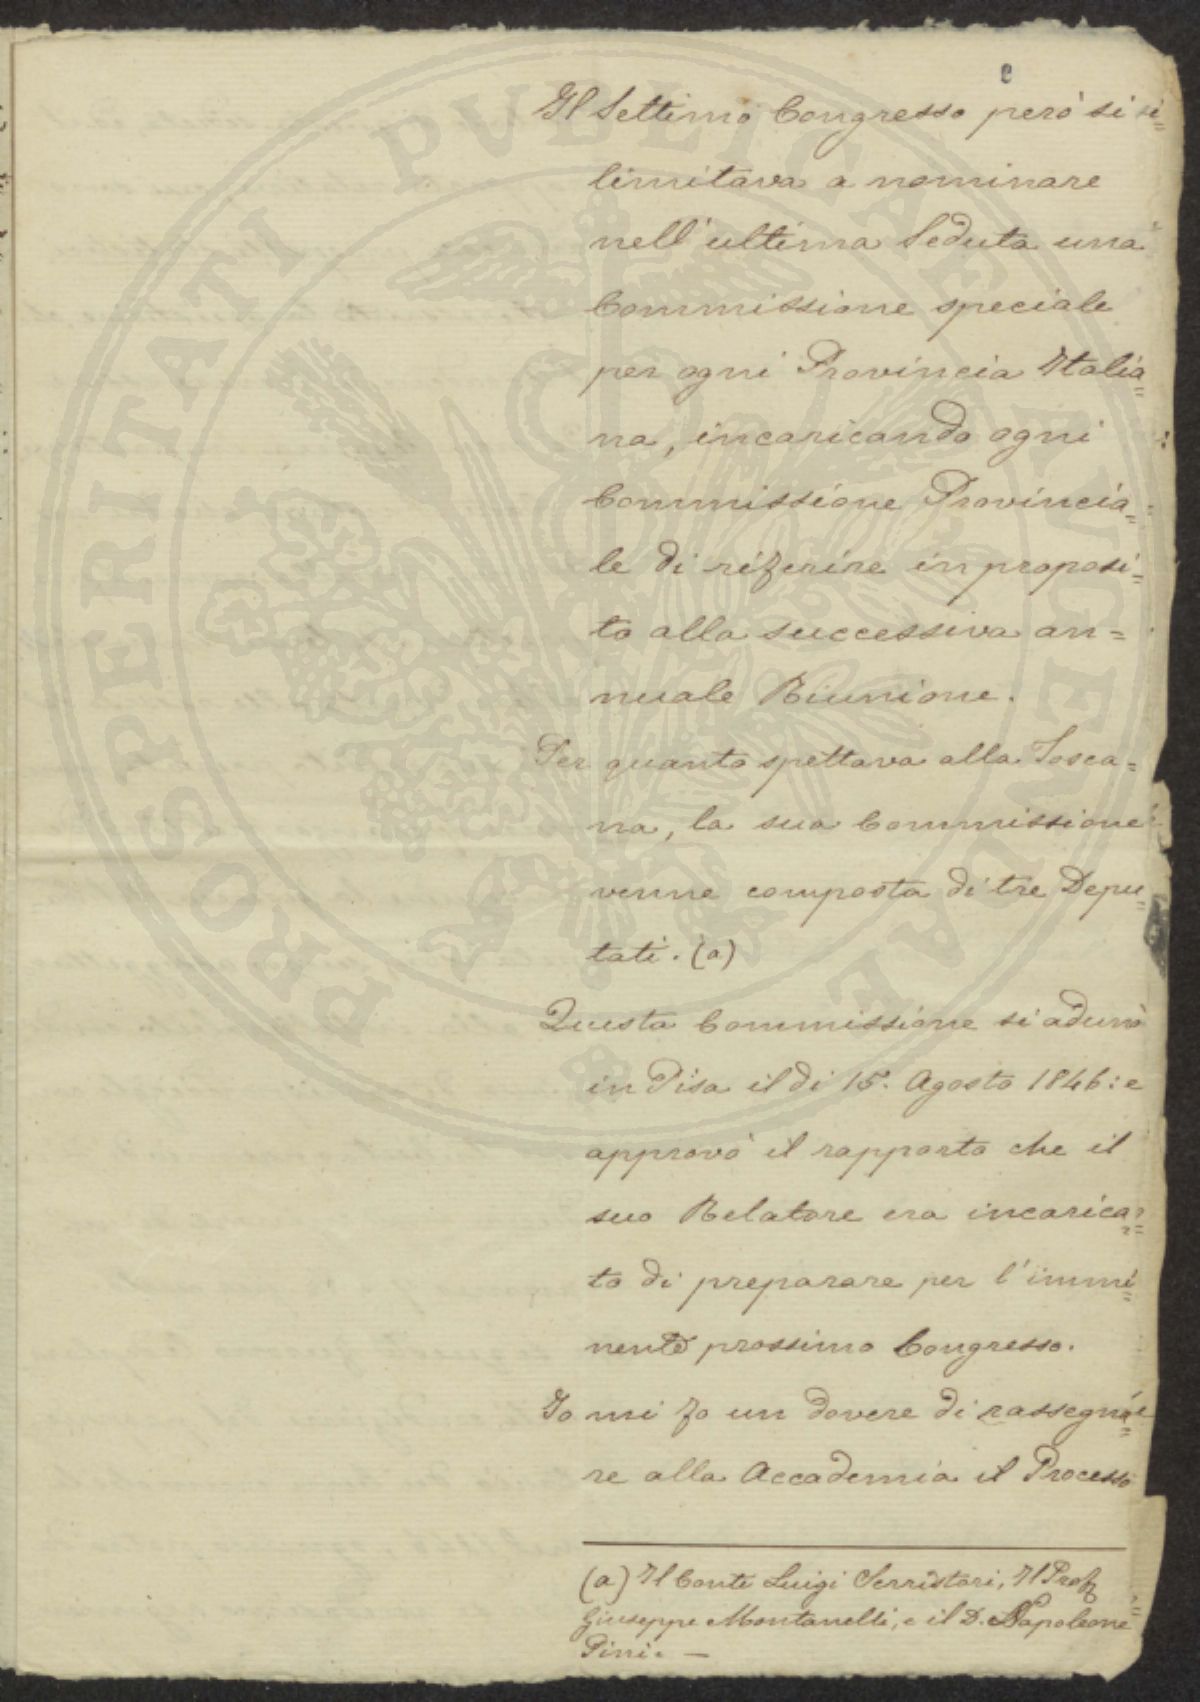 Il Settimo Congresso però si
limitava a nominare
nell'ultima Seduta una
Commissione speciale
per ogni Provincia Italia=
na, incaricando ogni
Commissione Provincia=
le di riferire in proposi=
to alla successiva an=
nuale Riunione.
Per quanto spettava alla Tosca=
na, la sua Commissione
venne composta di tre Depu=
tati. (a)
Questa Commissione si adunò
in Pisa il di 15. Agosto 1846: e
approvò il rapporto che il
suo Relatore era incarica=
to di preparare per l'immi=
nente prossimo Congresso.
Io mi fo un dovere di rassegna=
re alla Accademia il Processo
(a) Il Conte Luigi Serristori, Il Prof
Giuseppe Montanelli, e il D. Napoleone
Pini. —
PROSPERITATI PVBLICAE AVGENDAE